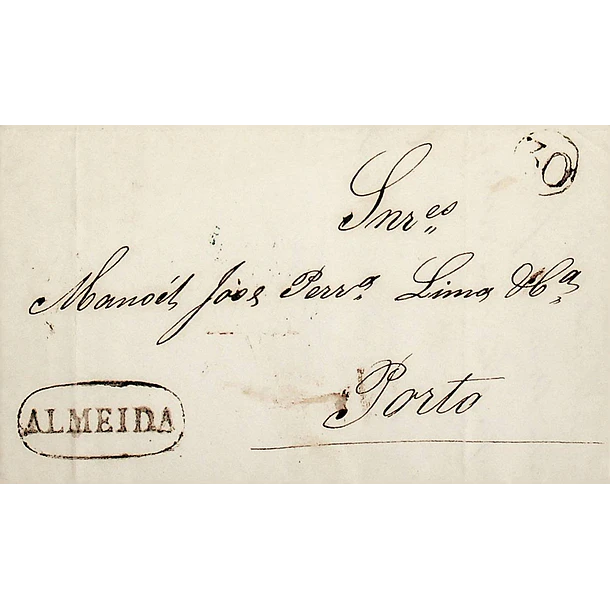 30
Snr.es
Manoél José Perr.a Lima & C.a
Porto
ALMEIDA